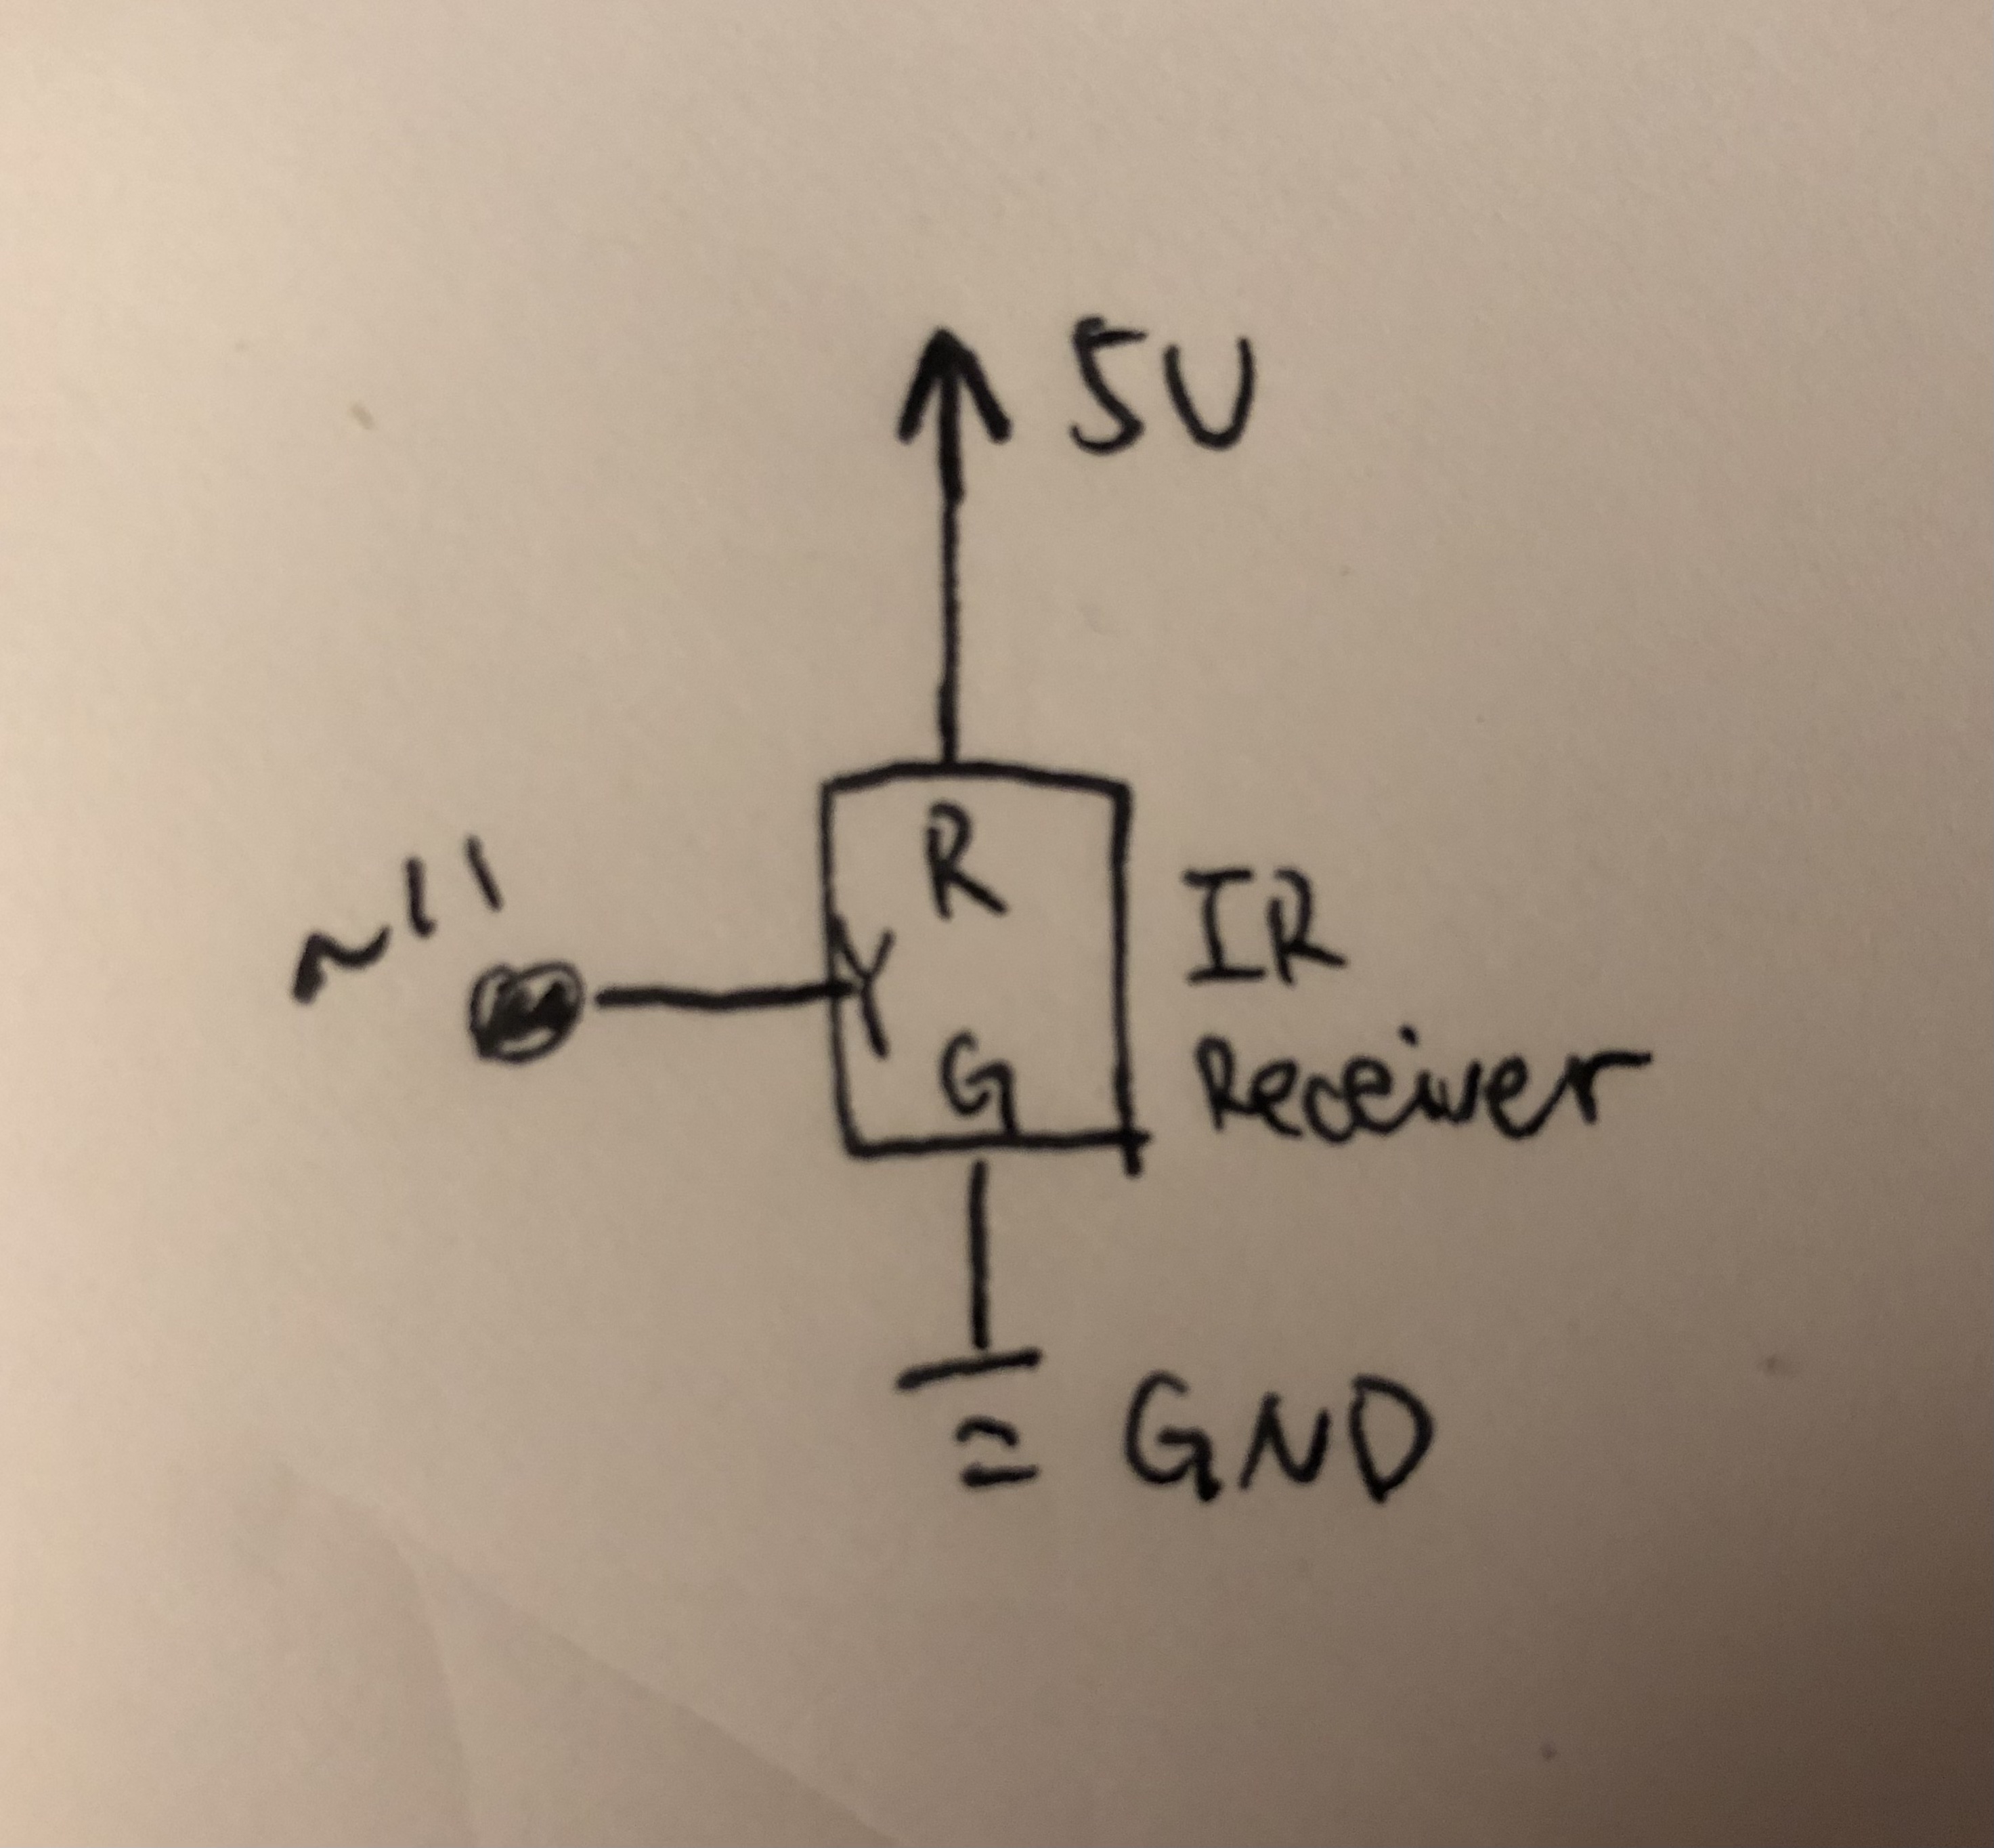 5V
~11
R
Y
G
IR
Receiver
GND